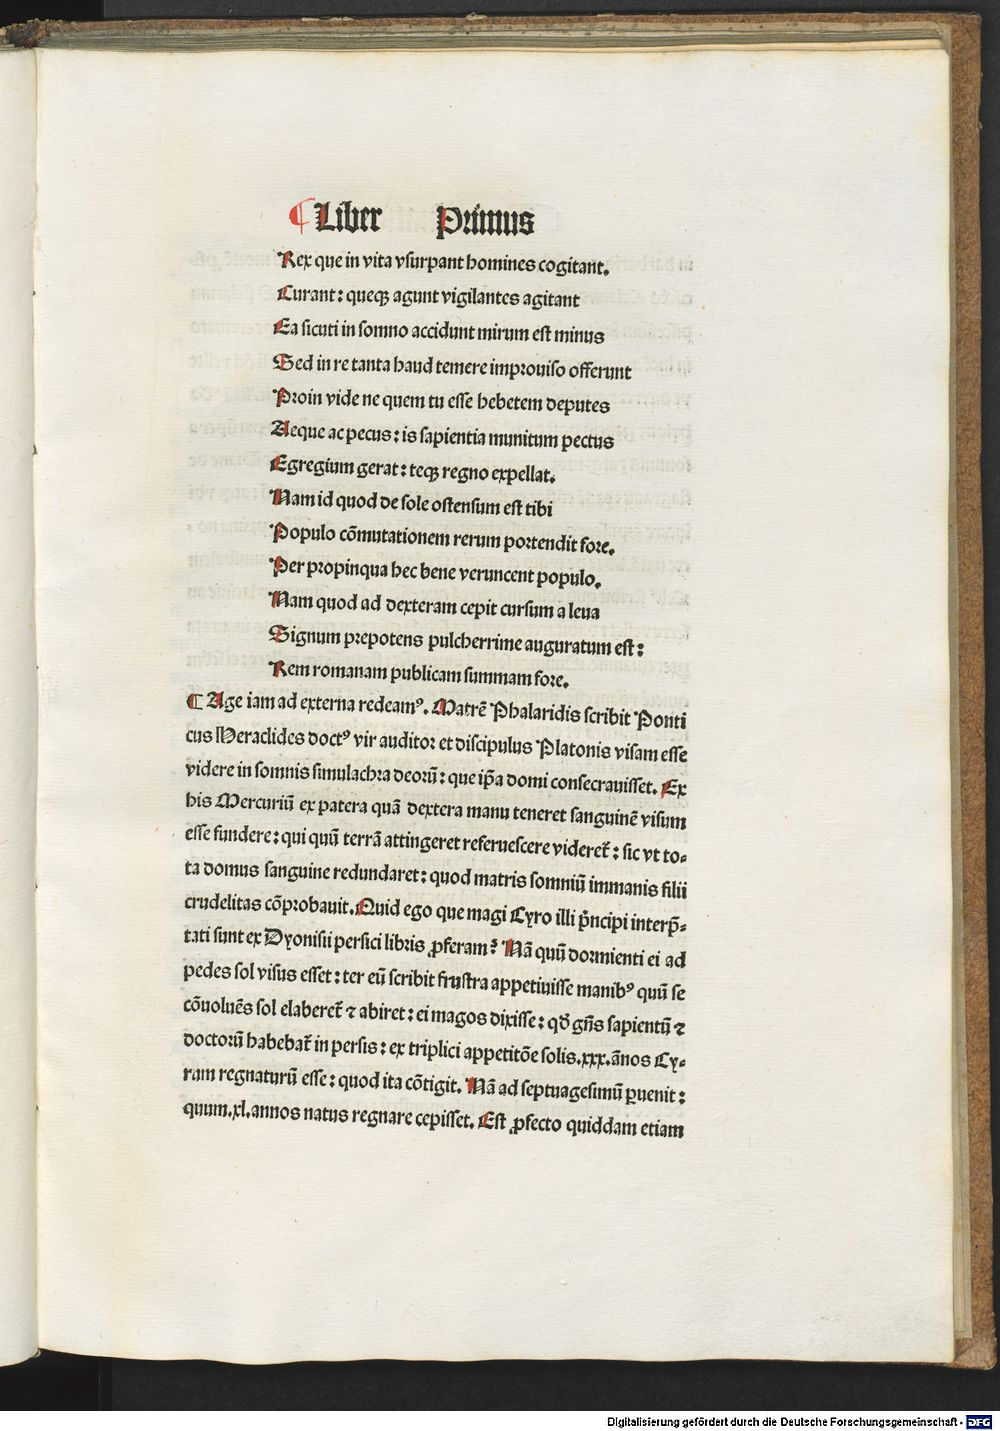 ⸿ Liber Primus
Rex que in vita vsurpant homines cogitant.
Curant: queqꝫ agunt vigilantes agitant
Ea sicuti in somno accidunt mirum est minus
Sed in re tanta haud temere improuiso offerunt
Proin vide ne quem tu esse hebetem deputes
Aeque ac pecus: is sapientia munitum pectus
Egregium gerat: teqꝫ regno expellat.
Nam id quod de sole ostensum est tibi
Populo cōmutationem rerum portendit fore.
Per propinqua hec bene veruncent populo.
Nam quod ad dexteram cepit cursum a leua
Signum prepotens pulcherrime auguratum est:
Rem romanam publicam summam fore.
⸿ Age iam ad externa redeamꝰ. Matrē Phalaridis scribit Ponti
cus Heraclides doctꝰ vir auditor et discipulus Platonis visam esse
videre in somnis simulachra deorū: que ip̄a domi consecrauisset. Ex
his Mercuriū ex patera quā dextera manu teneret sanguinē visum
esse fundere: qui quū terrā attingeret referuescere videret᷑: sic vt to-
ta domus sanguine redundaret: quod matris somniū immanis filii
crudelitas cōprobauit. Quid ego que magi Cyro illi p̄ncipi interp̄-
tati sunt ex Dyonisii persici libris ꝓferam? Nā quū dormienti ei ad
pedes sol visus esset: ter eū scribit frustra appetiuisse manibꝰ quū se
cōuoluēs sol elaberet᷑ ⁊ abiret: ei magos dixisse: qđ gn̄s sapientū ⁊
doctorū habebat᷑ in persis: ex triplici appetitōe solis .xxx. ānos Cy-
rum regnaturū esse: quod ita cōtigit. Nā ad septuagesimū ꝑuenit:
quum .xl. annos natus regnare cepisset. Est ꝓfecto quiddam etiam
Digitalisierung gefördert durch die Deutsche Forschungsgemeinschaft - DFG